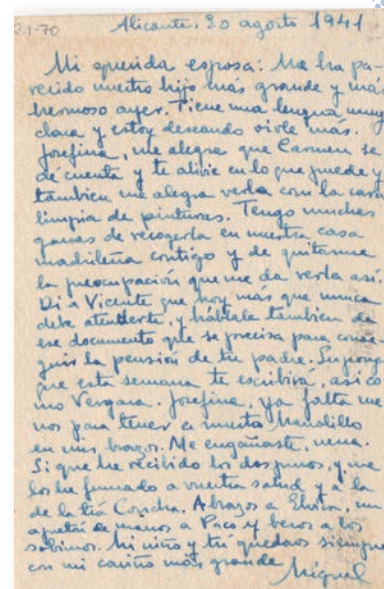 0.1-70
Alicante, 20 agosto 1941
Mi querida esposa: Me ha pa-
recido nuestro hijo más grande y más
hermoso ayer. Tiene una lengua muy
clara y estoy deseando oirle más.
Josefina, me alegra que Carmen se
dé cuenta y te alivie en lo que puede y
tambien me alegra verla con la cara
limpia de pinturas. Tengo muchas
ganas de recogerla en nuestra casa
madrileña contigo y de quitarme
la preocupación que me da verla así.
Di a Vicente que hoy más que nunca
debe atenderte, y háblale tambien de
ese documento que se precisa para conse-
guir la pensión de tu padre. Supongo
que esta semana te escribirá, así co-
mo Vergara. Josefina, ya falta me-
nos para tener a nuestro Manolillo
en mis brazos. Me engañaste, nena.
Si que he recibido los dos puros, y me
los he fumado a vuestra salud y a la
de la tía Concha. Abrazos a Elvira, un
apretón de manos a Paco y besos a los
sobrinos. Mi niño y tú quedaos siempre
con mi cariño más grande
Miguel